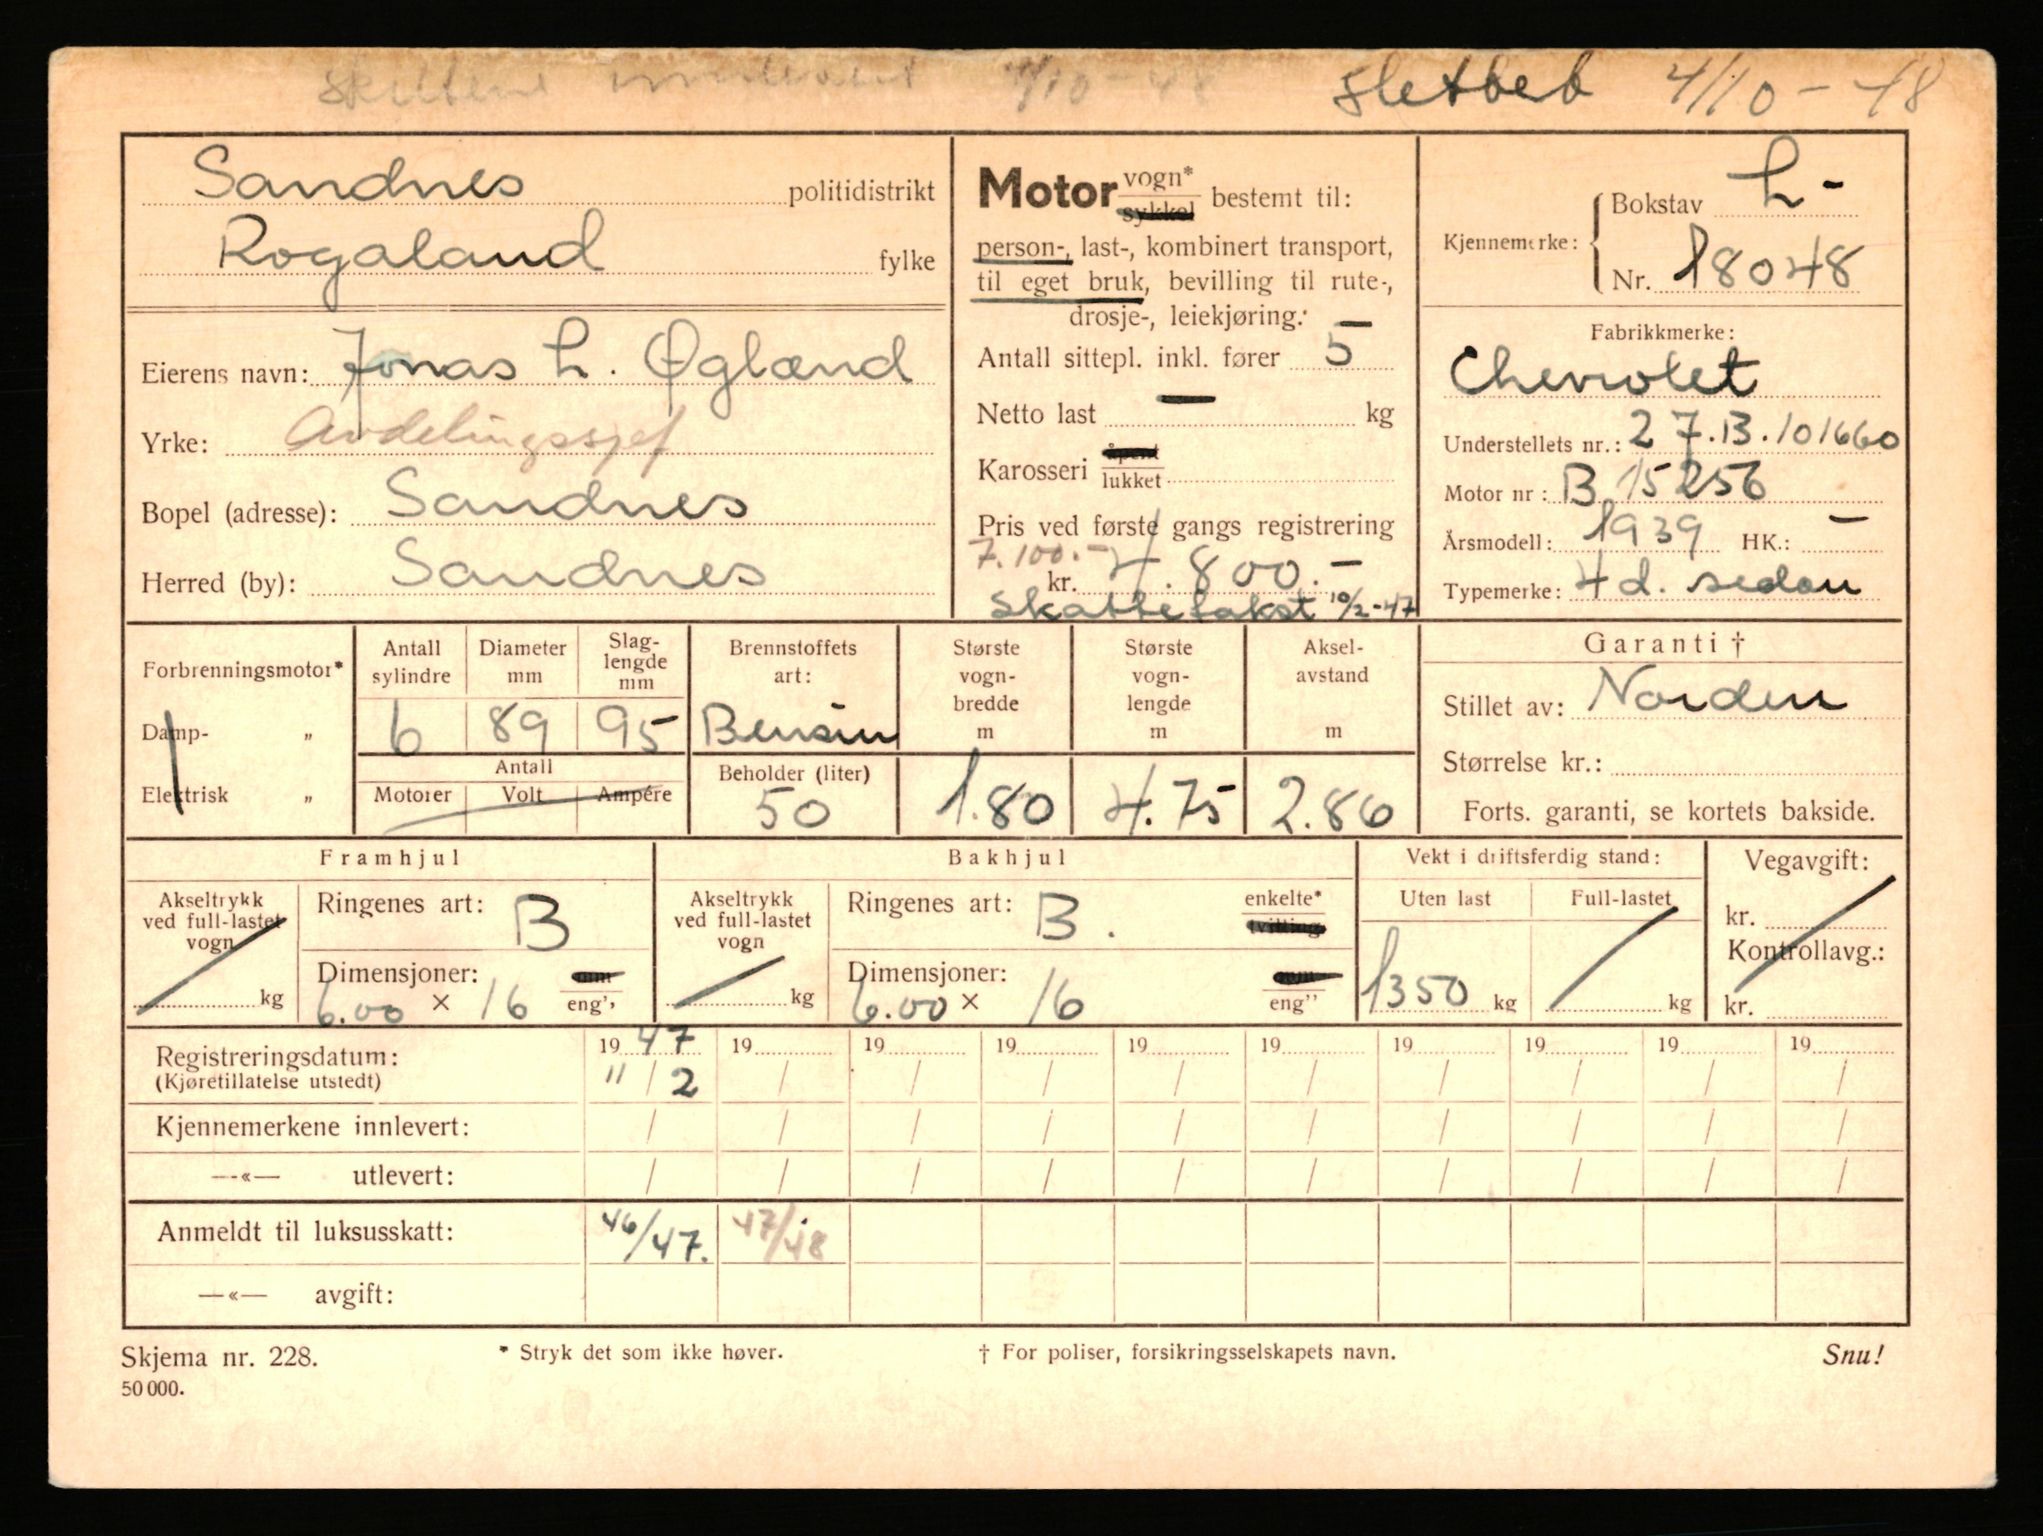 4/10-48
4/10-48
Sandnes politidistrikt
Rogaland fylke
Eierens navn: Jonas L. Øglænd
Yrke: Avdelingssjef
Bopel (adresse): Sandnes
Herred (by): Sandnes
Motor vogn* sykkel bestemt til:
person-, last-, kombinert transport,
til eget bruk, bevilling til rute-,
drosje-, leiekjøring.
Antall sittepl. inkl. fører 5
Netto last — kg
Karosseri åpent lukket
Pris ved første gangs registrering
7.100.-
kr. 4.800.-
Skattetakst 10/2-47
Kjennemerke: Bokstav L-
Nr. 18048
Fabrikkmerke:
Chevrolet
Understellets nr.: 27.B.101660
Motor nr: B 15256
Årsmodell: 1939 HK.: —
Typemerke: 4 d. sedan
Forbrenningsmotor*
Damp- "
Elektrisk "
Antall sylindre
Diameter mm
Slag-lengde mm
6 89 95
Antall
Motorer Volt Ampére
Brennstoffets art:
Bensin
Beholder (liter)
50
Største vogn-bredde m
1.80
Største vogn-lengde m
4.75
Aksel-avstand m
2.86
Garanti †
Stillet av: Norden
Størrelse kr.:
Forts. garanti, se kortets bakside.
Framhjul
Akseltrykk ved full-lastet vogn
kg
Ringenes art: B
Dimensjoner: mm
6.00 × 16 eng''
Bakhjul
Akseltrykk ved full-lastet vogn
kg
Ringenes art: B. enkelte* tvilling
Dimensjoner: mm
6.00 × 16 eng''
Vekt i driftsferdig stand:
Uten last Full-lastet
1350 kg kg
Vegavgift:
kr.
Kontrollavg.:
kr.
Registreringsdatum: 1947 19 19 19 19 19 19 19 19 19
(Kjøretillatelse utstedt) 11/2 / / / / / / / / /
Kjennemerkene innlevert: / / / / / / / / / /
—«— utlevert: / / / / / / / / / /
Anmeldt til luksusskatt: 46/47. 47/48
—«— avgift:
Skjema nr. 228. * Stryk det som ikke høver. † For poliser, forsikringsselskapets navn. Snu!
50 000.